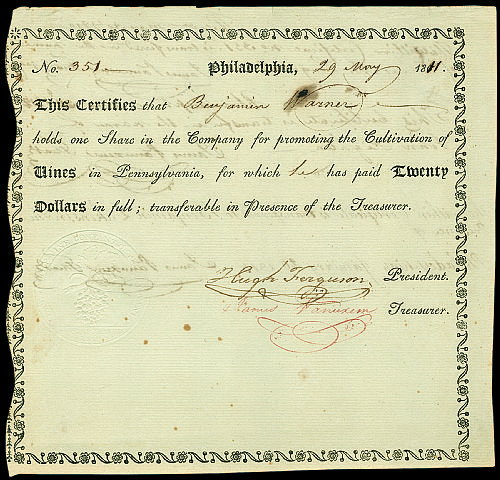 No. 351 Philadelphia, 29 May 1811.
This Certifies that Benjamin Warner
holds one Share in the Company for promoting the Cultivation of
Vines in Pennsylvania, for which he has paid Twenty
Dollars in full; transferable in Presence of the Treasurer.
Hugh Ferguson President.
James Vanuxem Treasurer.